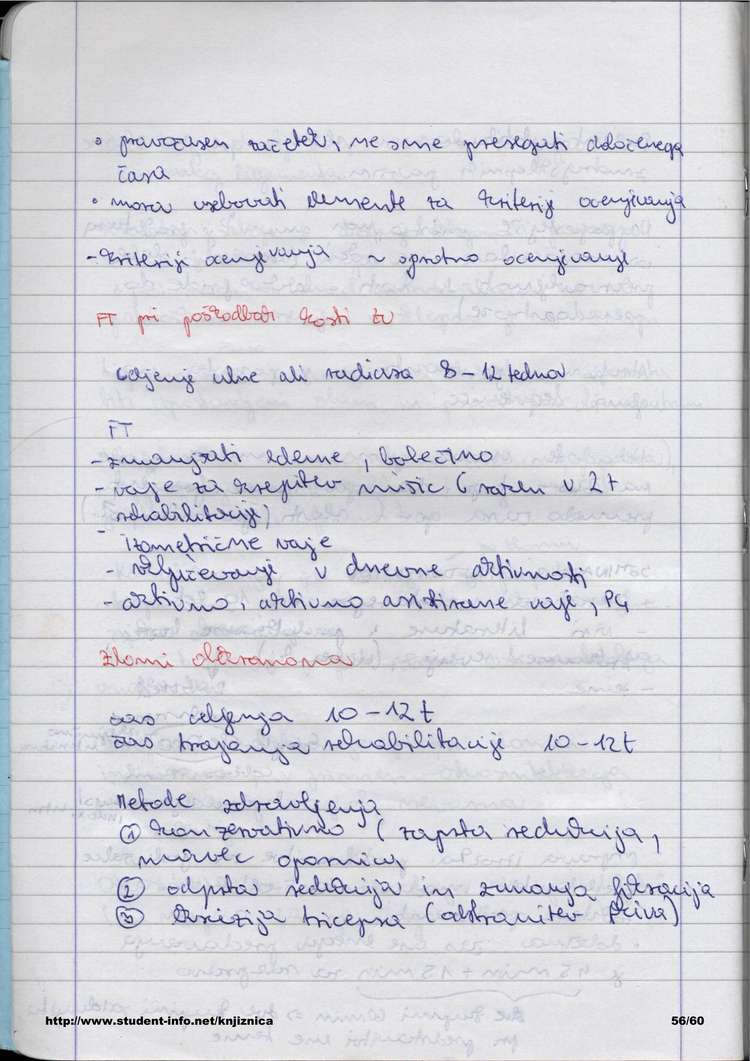 • pravočasen začetek, ne sme presegati določenega
časa
• mora vsebovati elemente za kriterij ocenjevanja
- kriteriji ocenjevanja ~ sprotno ocenjevanje
FT pri poškodbah kosti
celjenje ulne ali radiusa 8-12 tednov
FT
- zmanjšati edeme, bolečino
- vaje za krepitev mišic (razen v 2t
rehabilitacije)
- izometrične vaje
- vključevanje v dnevne aktivnosti
- aktivno, aktivno asistirane vaje, PG
Zlomi olekranona
čas celjenja 10-12t
čas trajanja rehabilitacije 10-12t
Metode zdravljenja
① konzervativno (zaprta redukcija,
mavec opornica
② odprta redukcija in zunanja fiksacija
③ ekscizija tricepsa (odstranitev
http://www.student-info.net/knjiznica 56/60